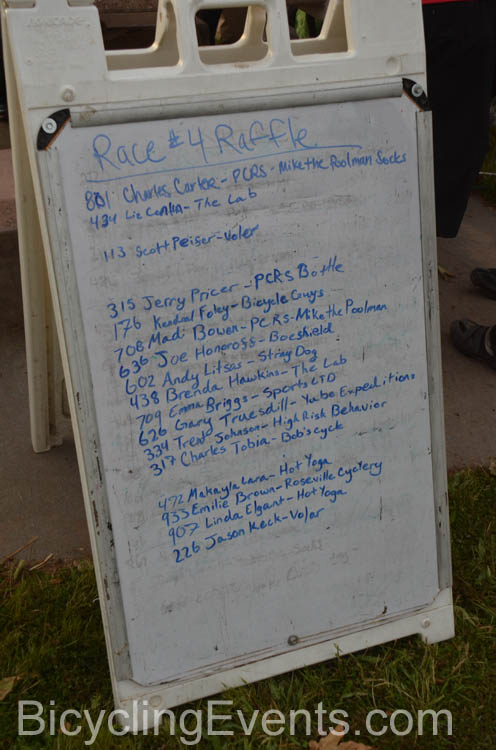 Race #4 Raffle
801 Charles Carlee - PCRS - Mike the Poolman Socks
434 Liz Conlin - The Lab
113 Scott Peiser - Voler
315 Jerry Pricer - PCRS Bottle
176 Kendral Foley - Bicycle Guys
708 Madi Bowen - PCRS - Mike the Poolman
636 Joe Honcross - Boeshield
602 Andy Litsas - Stray Dog
438 Brenda Hawkins - The Lab
709 Emma Briggs - Sports LTD
626 Gary Truesdill - Yube Expeditions
334 Trent Johnson - High Risk Behavior
317 Charles Tobia - Bob's cyck
472 Makayla Lara - Hot Yoga
933 Emilie Brown - Roseville Cyclery
907 Linda Elgant - Hot Yoga
226 Jason Keck - Volar
BicyclingEvents.com